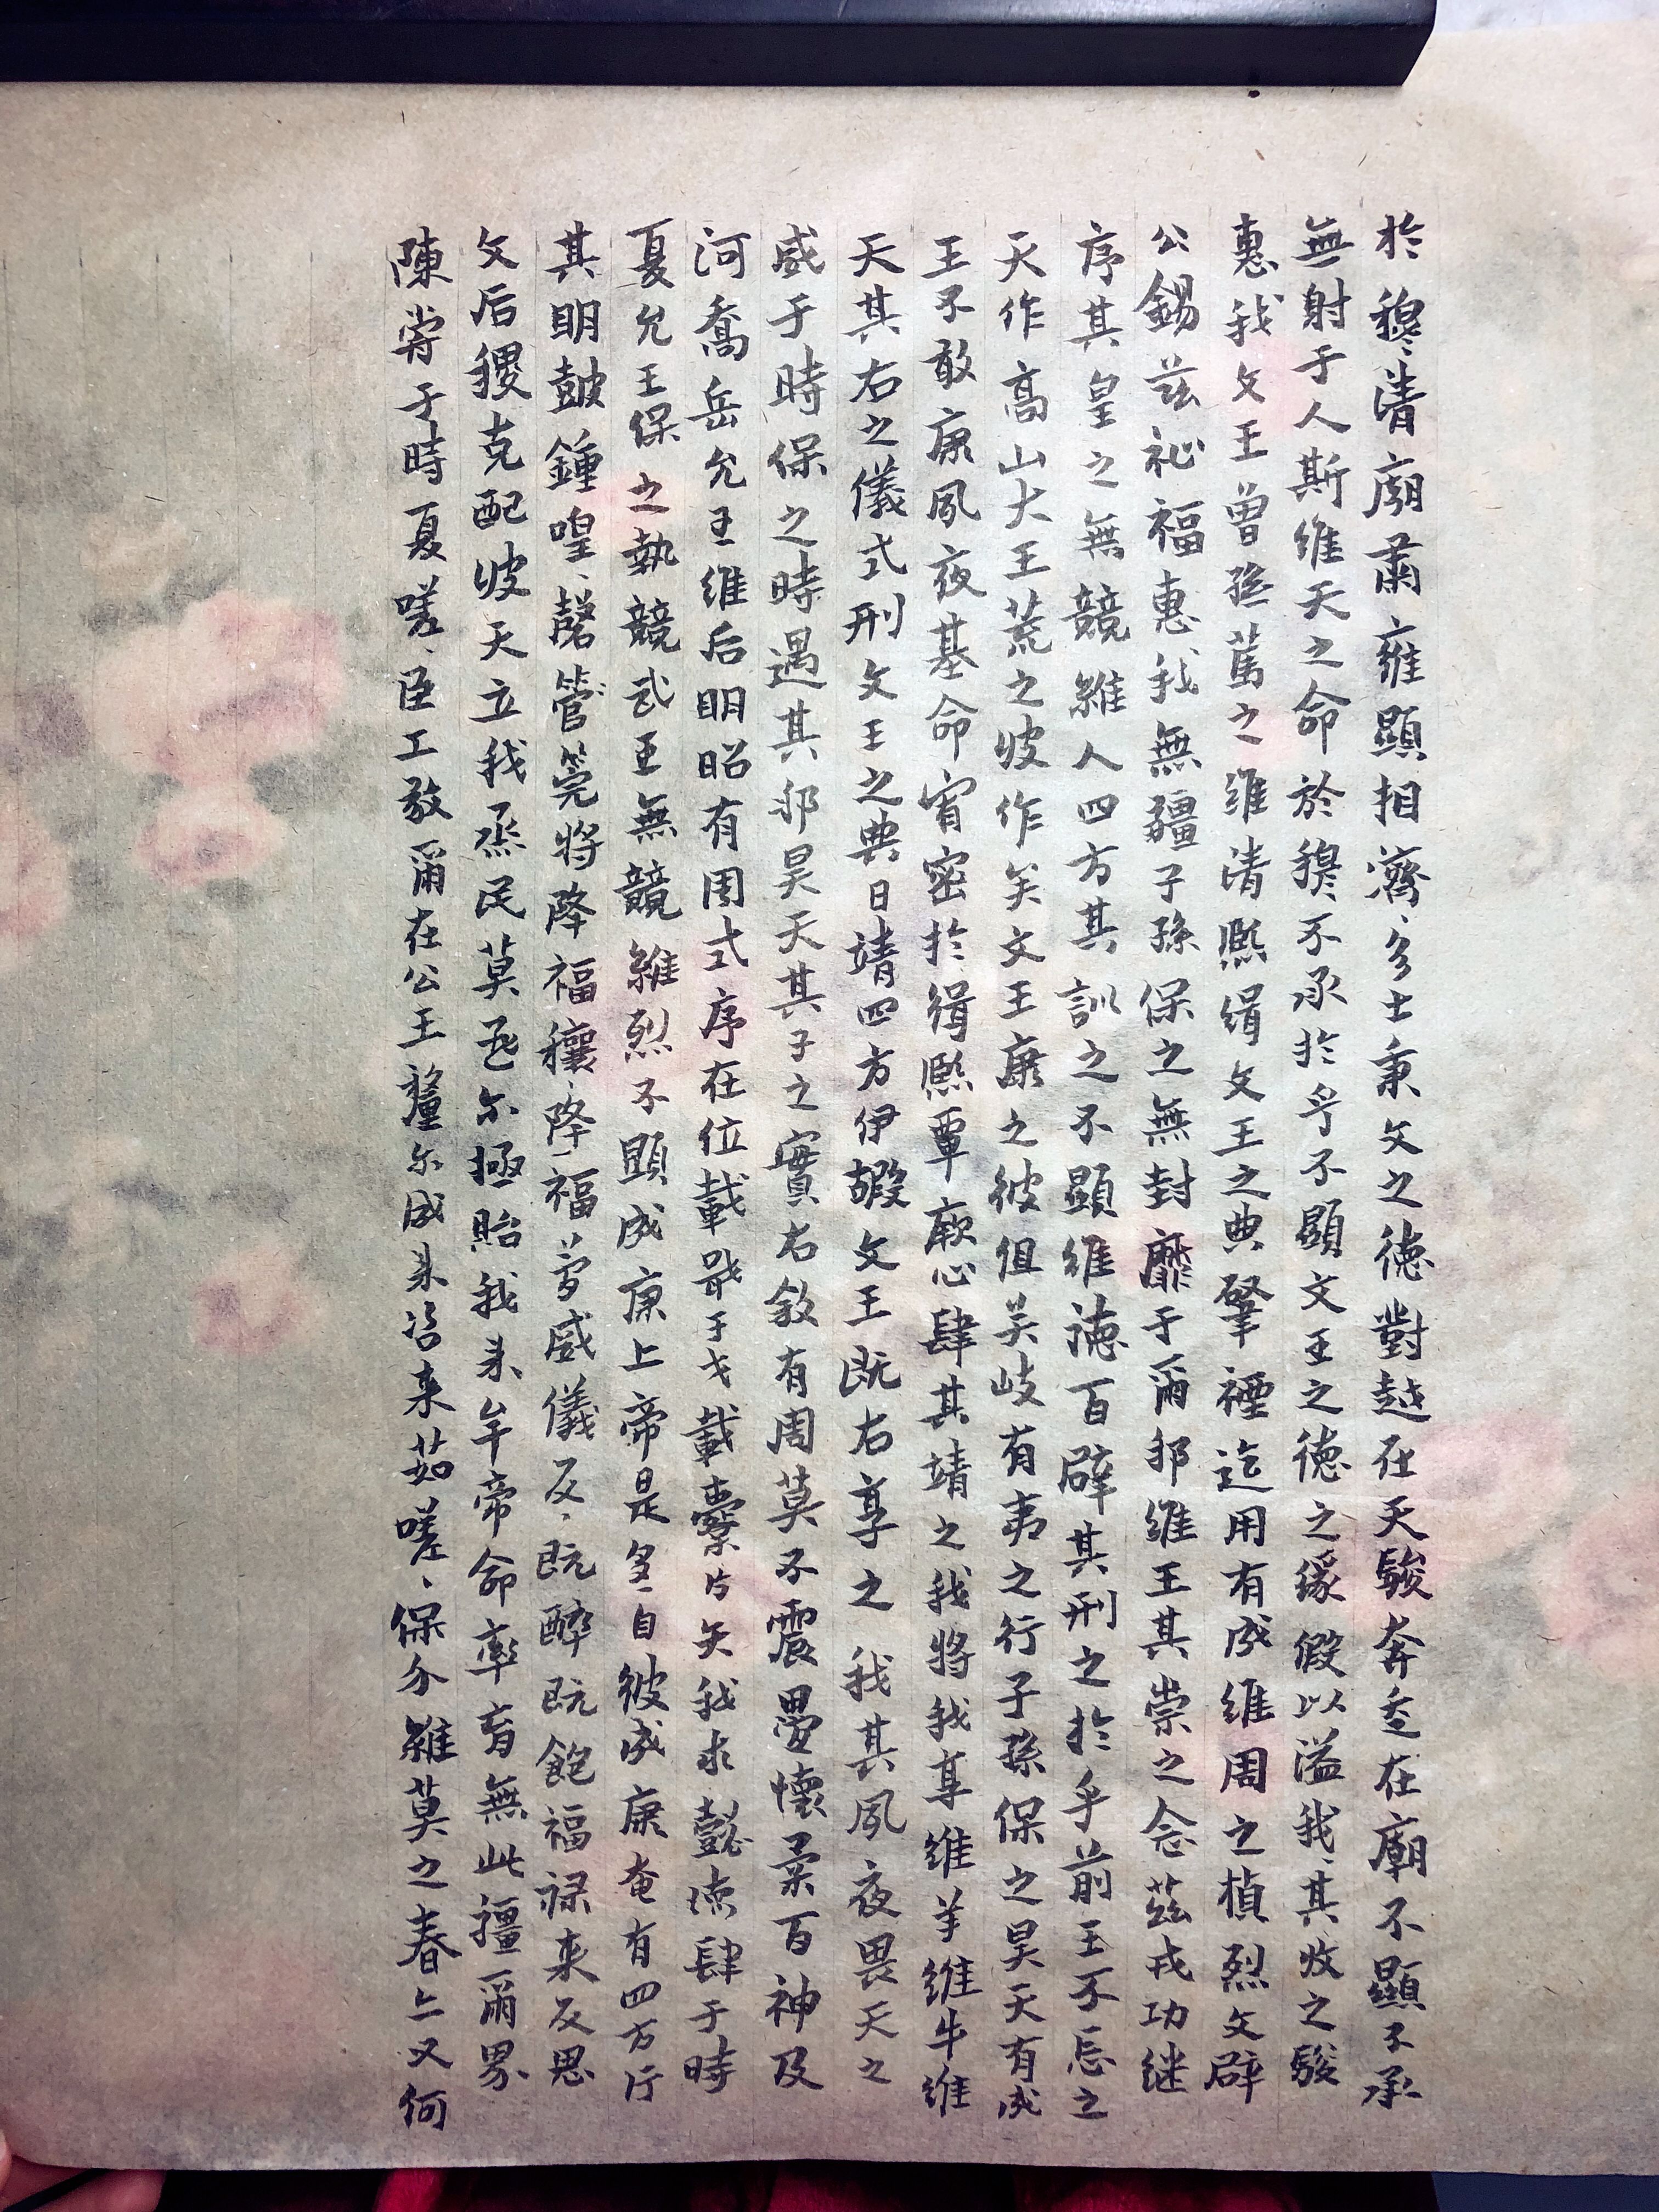 於穆、清廟肅雍顯相濟、多士秉文之德對越在天駿奔走在廟不顯不承
無射于人斯維天之命於穆不承於乎不顯文王之德之緣假以溢我、其收之駿
惠我文王曾孫篤之維清熙緝文王之典肇禋迄用有成維周之楨烈文辟
公錫茲祉福惠我無疆子孫保之無封靡于爾邦維王其崇之念茲戎功继
序其皇之無競維人四方其訓之不顯維德百辟其刑之於乎前王不忘之
天作高山大王荒之彼作矣文王康之彼徂矣岐有夷之行子孫保之昊天有成
王不敢康夙夜基命宥密於緝熙單厥心肆其靖之我將我享維羊維牛維
天其右之儀式刑文王之典日靖四方伊嘏文王既右享之我其夙夜畏天之
威于時保之時邁其邦昊天其子之實右敘有周莫不震疊懷柔百神及
河喬岳允王維后明昭有周式序在位載戢于戈載櫜弓矢我求懿德肆于時
夏允王保之執競武王無競維烈不顯成康上帝是皇、自彼成康奄有四方斤
其明鼓鍾喤、磬管筦將降福穰、降福簡威儀反、既醉既飽福禄来反思
文后稷克配彼天立我烝民莫匪尔極貽我来牟帝命率育無此疆爾界
陳常于時夏嗟、臣工敬爾在公王釐尔成来咨来茹嗟、保介維莫之春亡又何